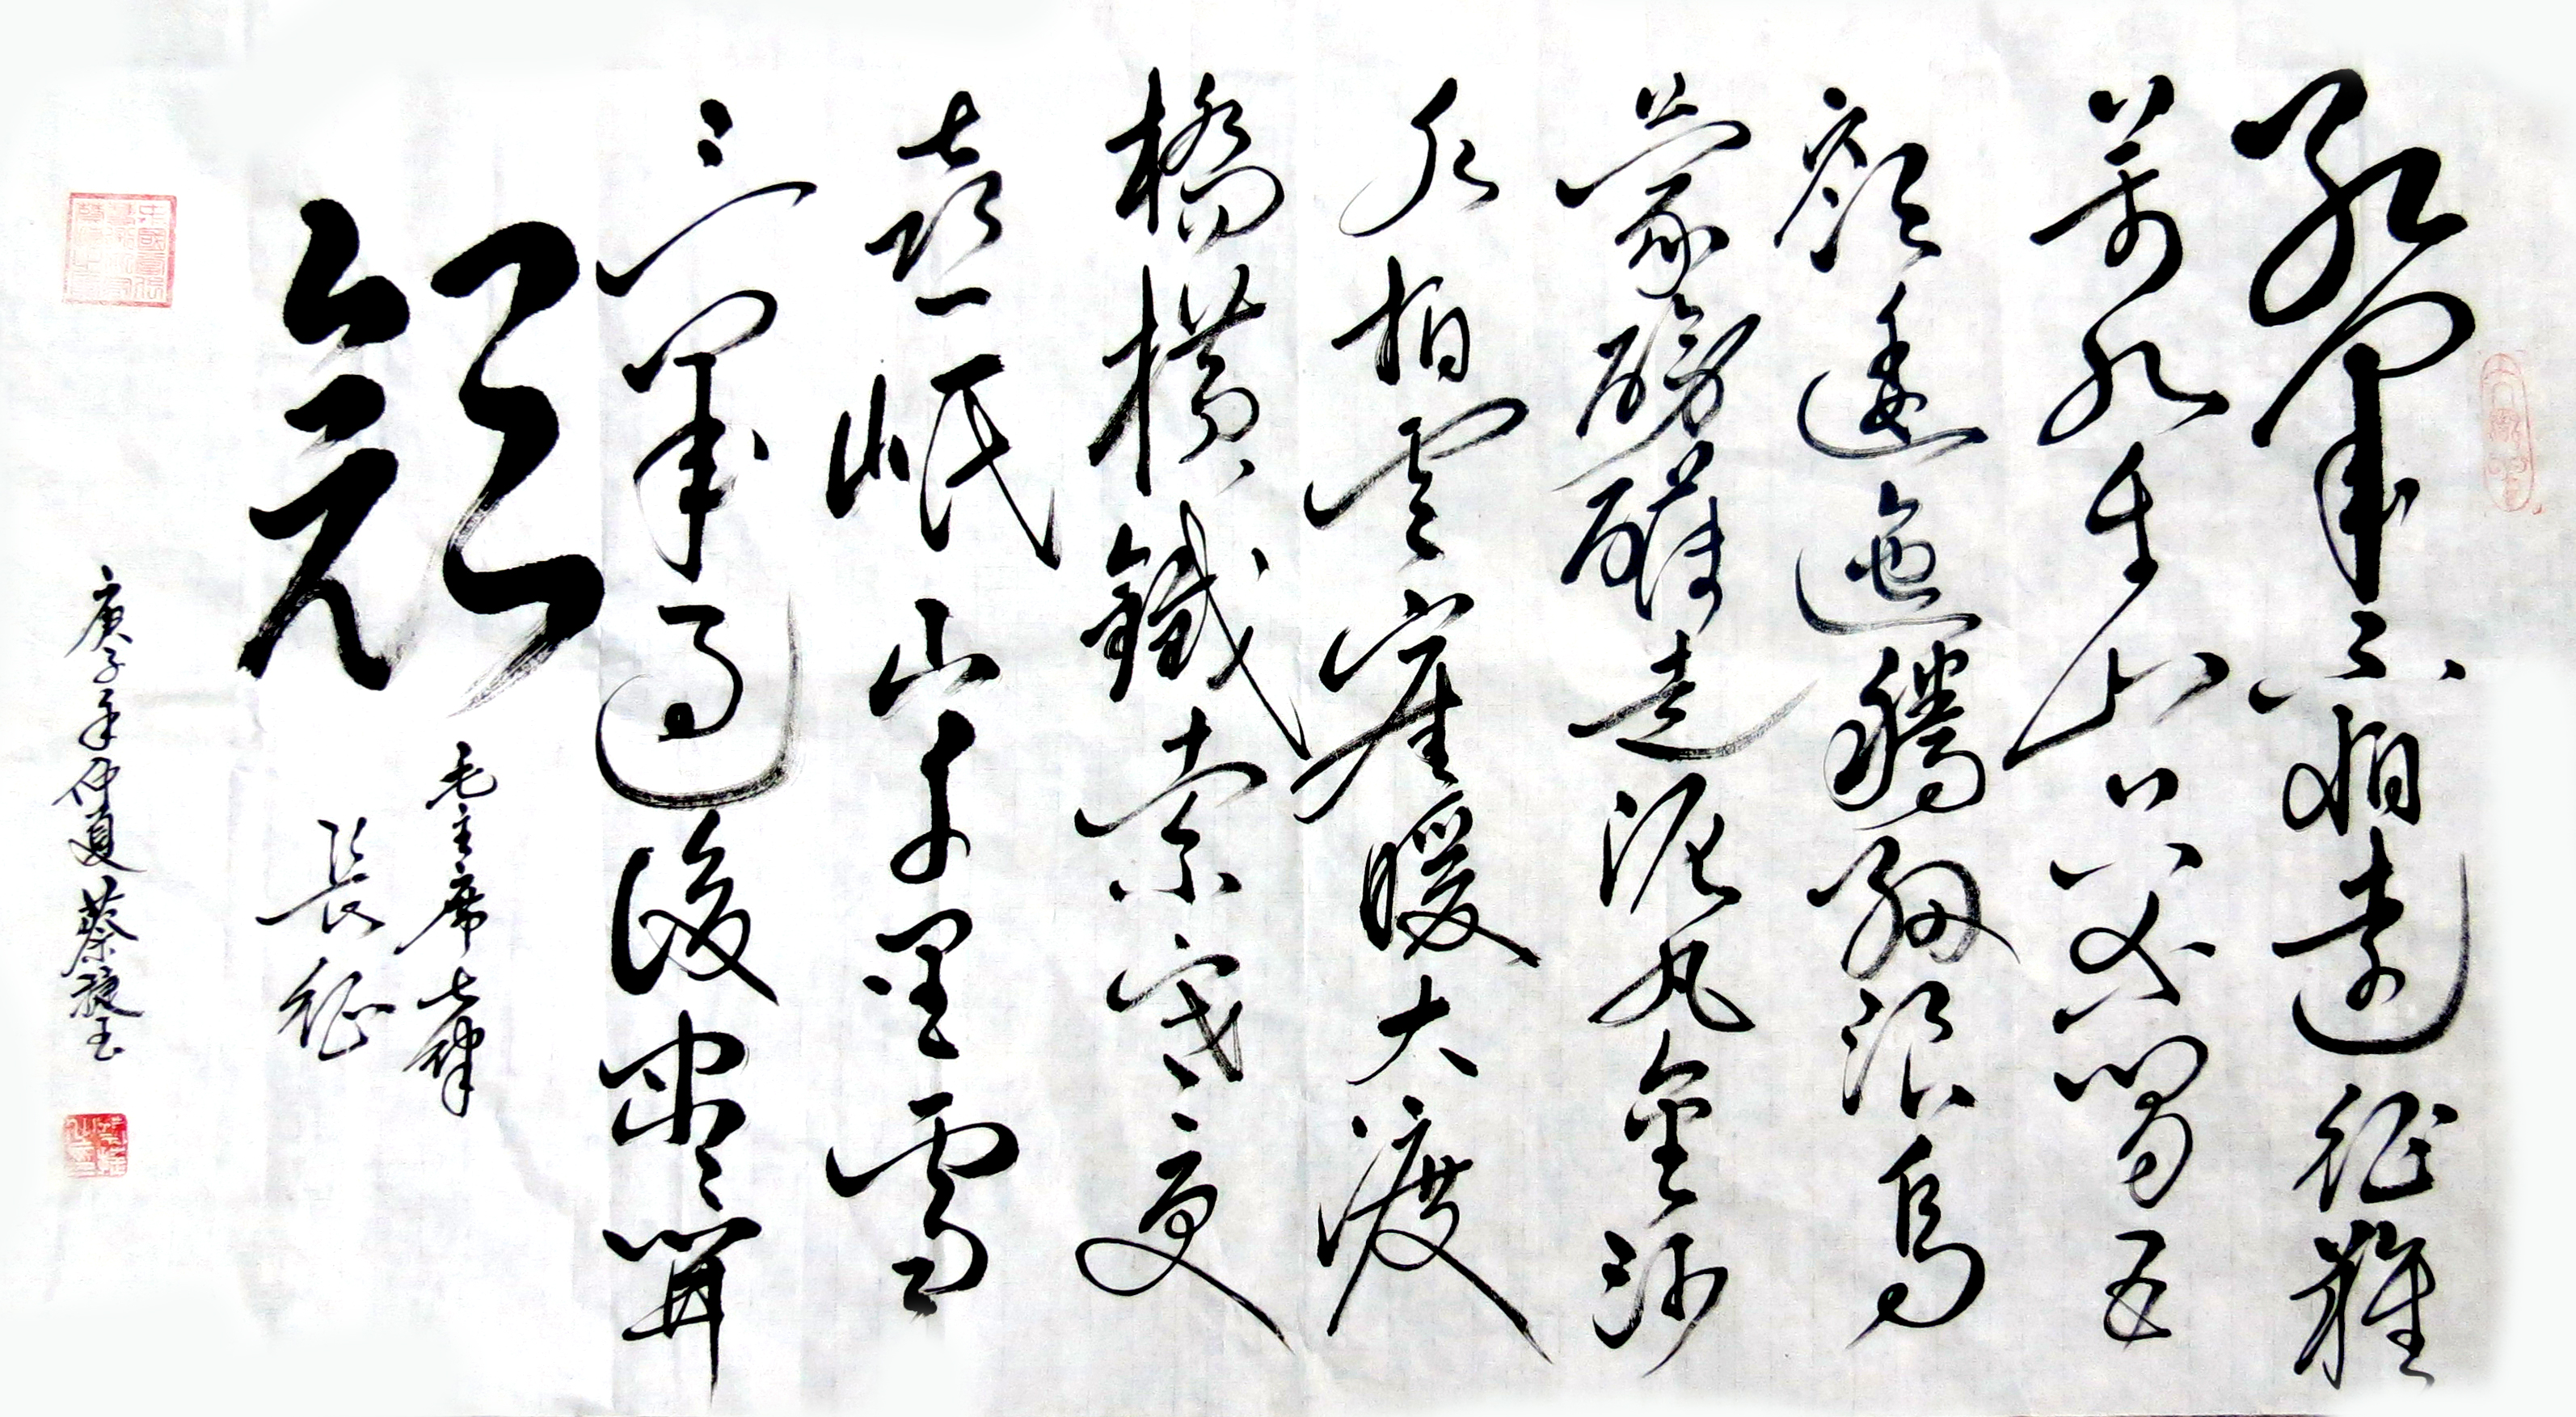 紅軍不怕遠征難
萬水千山只等閒五
嶺逶迤騰細浪烏
蒙磅礴走泥丸金沙
水拍雲崖暖大渡
橋橫鐵索寒更
喜岷山千里雪
三軍過後盡開
顏
毛主席七律
長征
庚子年仲夏蔡玉